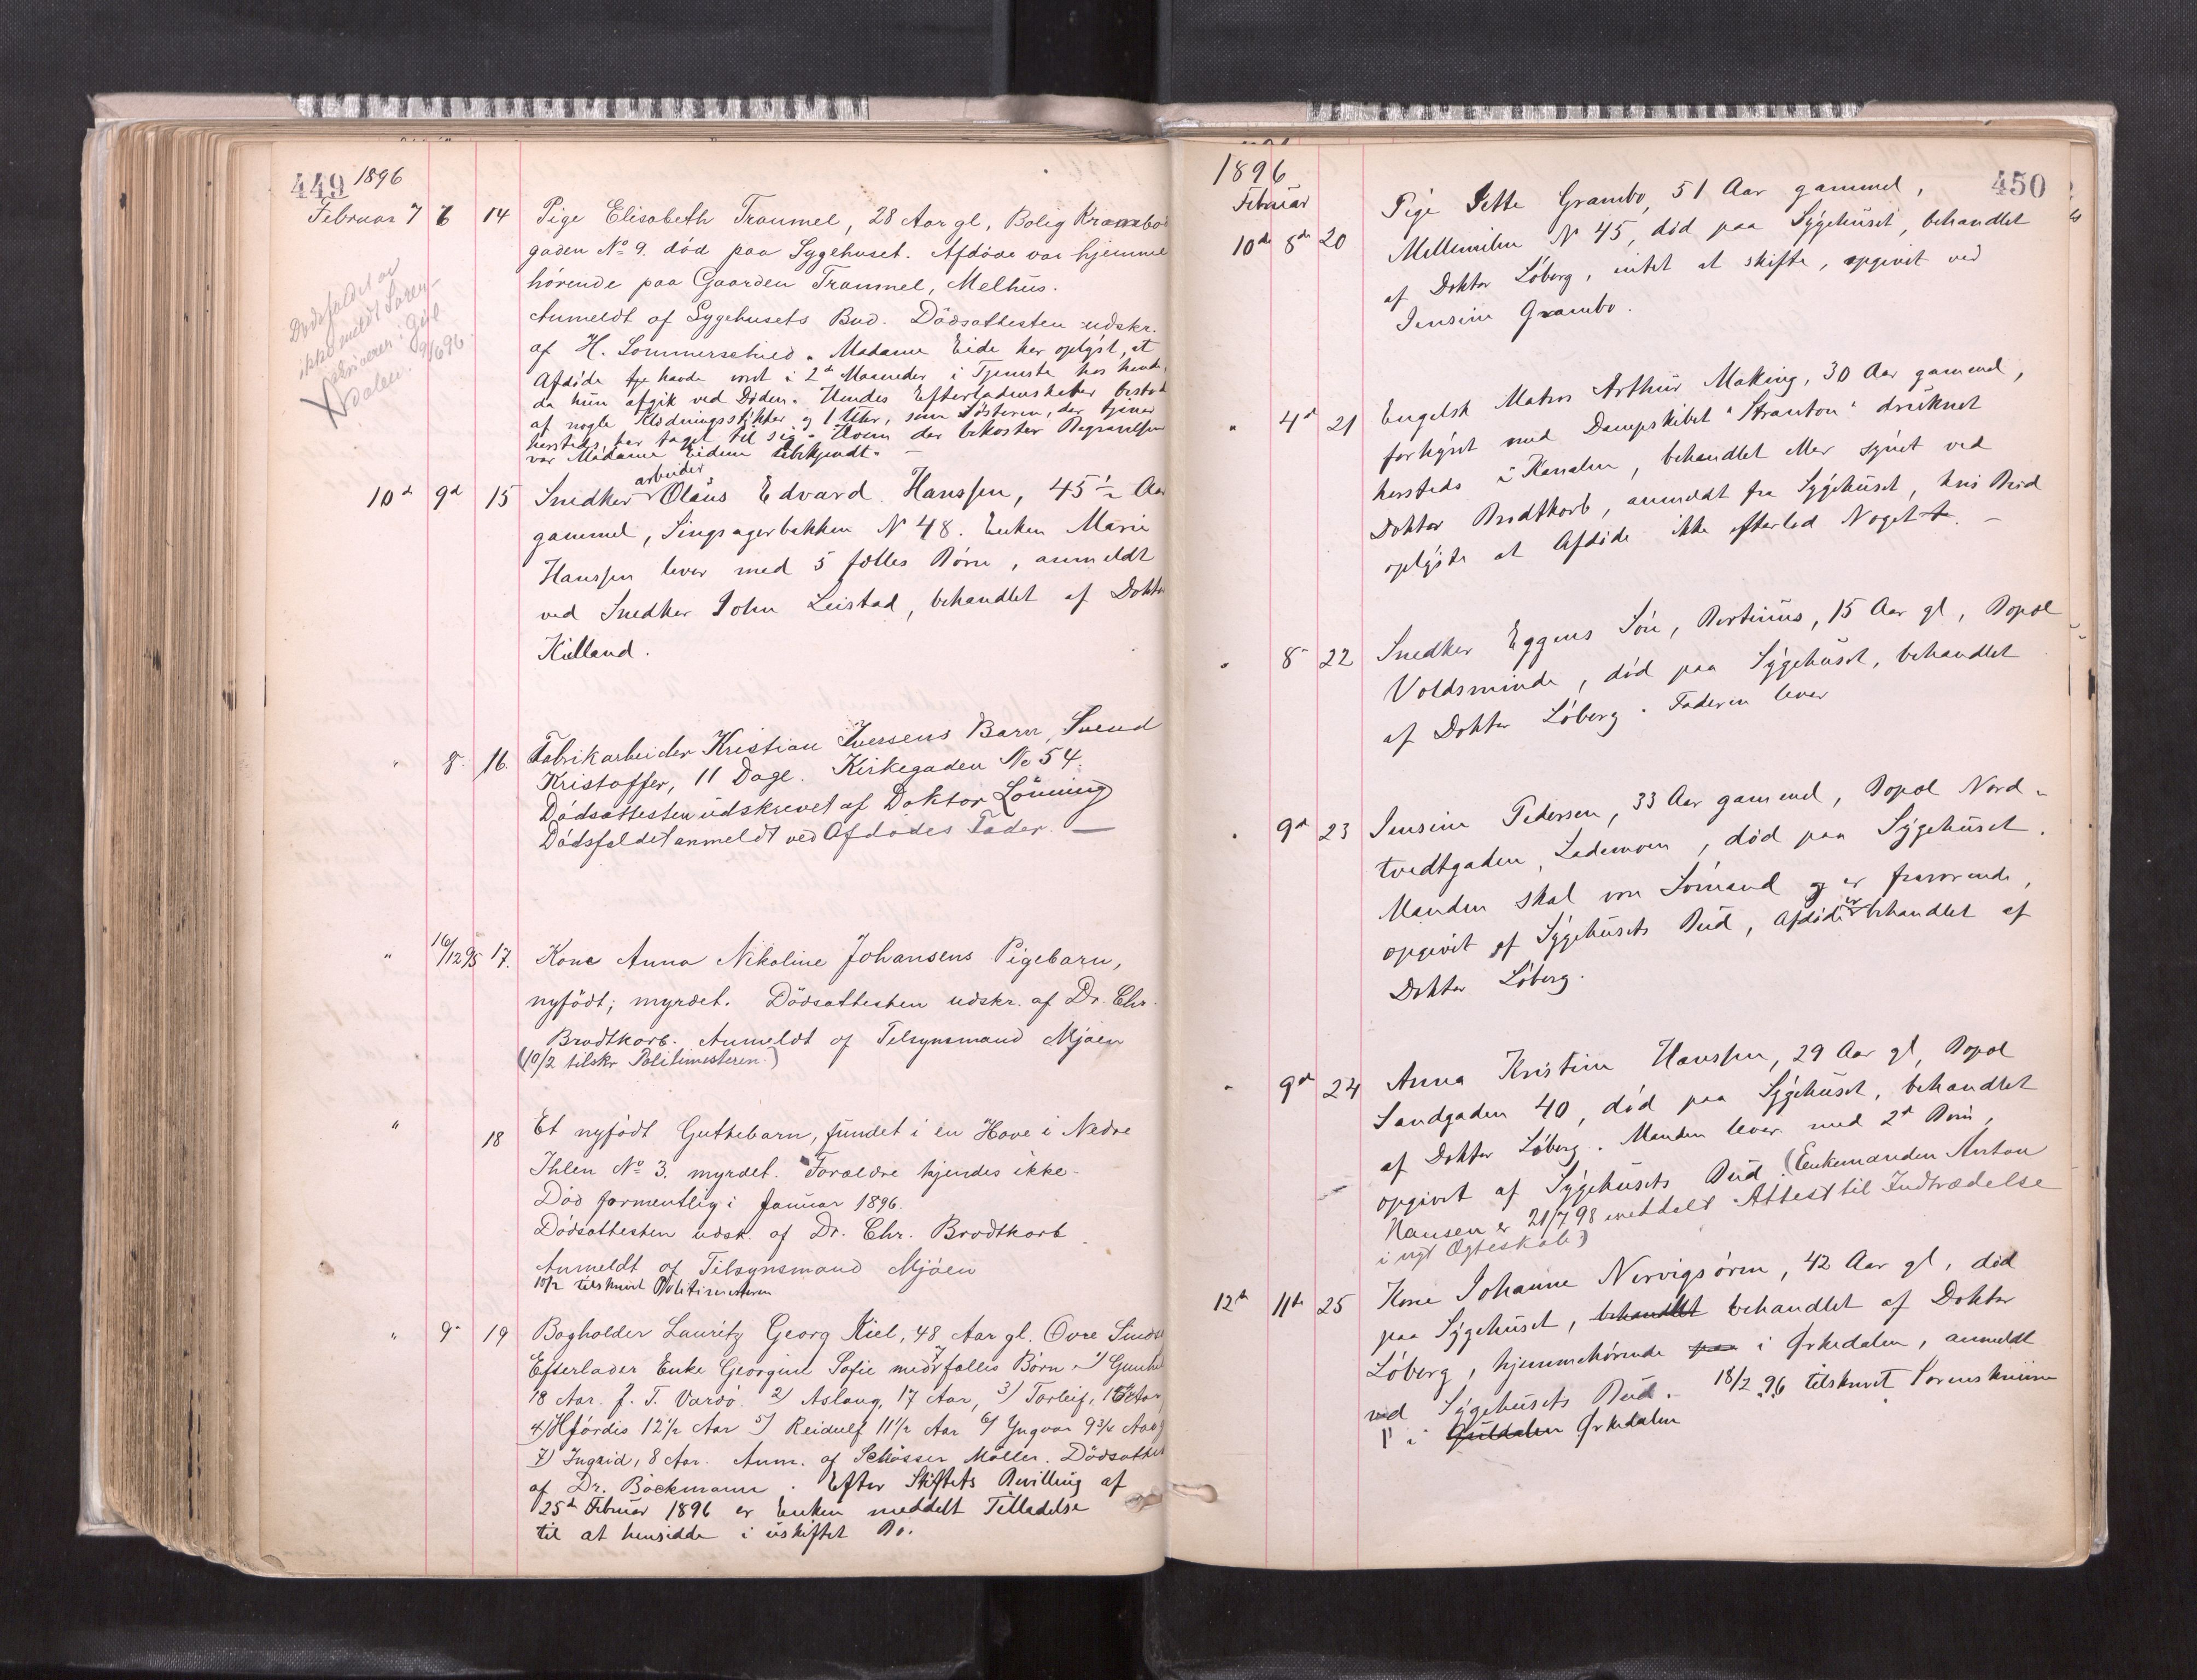 449 1896
Februar 7 6 14 Pige Elisabeth Traumel, 28 Aar gl, Bolig Krambod
gaden No 9. död paa Sygehuset. Afdöde var hjemme
hörende paa Gaarden Trammel, Melhus.
Anmeldt af Sygehusets Bud. Dödsattesten udskr.
af H. Sommerschied. Madame Eide har oplyst, at
Afdöde havde vært i 2de Maaneder i Tjeneste hos hende,
da hun afgik ved Döden. Hendes Efterladenskaber bestod
af nogle Klædningsstykker og 1 Uhr, som Söstern, der tjener
hersteds, har taget til sig. Hvem der bekoster Begravelsen
var Madame Eidem ubekjendt. —
Dödsfaldet er
ikke meldt Soren-
skriveren i Gul
dalen. 9/6 96
10de 9de 15 Snedker arbeider Olaus Edvard Hanssen, 45 ½ Aar
gammel, Singsagerbakken N 48. Enken Marie
Hanssen lever med 5 fælles Börn, anmeldt
ved Snedker John Leistad, behandlet af Doktor
Kielland.
" 8. 16. Fabrikarbeider Kristian Iversens Barn, Svend
Kristoffer, 11 Dage. Kirkegaden No 54.
Dödsattesten udskrevet af Doktor Lönning
Dödsfaldet anmeldt ved Afdödes Fader. —
" 16/12 95 17. Kone Anna Nikoline Johansens Pigebarn,
nyfödt; myrdet. Dödsattesten udskr. af Dr. Chr.
Brodtkorb. Anmeldt af Tilsynsmand Mjöen
(10/2 tilskr Politimesteren.)
" 18 Et nyfödt Guttebarn, fundet i en Have i Nedre
Ihlen No 3. myrdet. Forældre kjendes ikke.
Död formentlig i Januar 1896.
Dödsattesten udsk. af Dr. Chr. Brodtkorb
Anmeldt af Tilsynsmand Mjöen
10/2 tilskrevet Politimesteren
" 9. 19 Bogholder Lauritz Georg Kiel, 48 Aar gl. Övre
Efterlader Enke Georgine Sofie med 7 fælles Börn 1)
18 Aar. f. T. Vardö. 2) Aslaug, 17 Aar, 3) Torleif, Aar
4) Hjördis 12½ Aar 5) Reidulf 11½ Aar 6) Yngvar 9¾ Aar
7) Ingrid, 8 Aar. Anm. af Möller. Dödsattest
af Dr. Böckmann. Efter Skiftets Bevilling af
25de Februar 1896 er Enken meddelt Tilladelse
til at hensidde i uskiftet Bo.
1896 450
Februar
10de 8de 20 Pige Jette Grambo, 51 Aar gammel,
Mellemilen N 45, död paa Sygehuset, behandlet
af Doktor Löberg, intet at skifte, opgivet ved
Jensine Grambo.
" 4de 21 Engelsk Matros Arthur Making, 30 Aar gammel,
forlyst med Dampskibet "Stranton" druknet
hersteds i Kanalen, behandlet eller synet ved
Doktor Brodtkorb, anmeldt fra Sygehuset, hvis Bud
oplyste at Afdöde ikke efterlod Noget. —
" 8 22 Snedker Eggens Sön, Bertinus, 15 Aar gl, Bopæl
Voldsminde, död paa Sygehuset, behandlet
af Doktor Löberg. Faderen lever
" 9de 23 Jensine Pedersen, 33 Aar gammel, Bopæl Nord-
tvedtgaden, Lademoen, död paa Sygehuset.
Manden skal være Sömand og er fraværende,
opgivet af Sygehusets Bud, Afdöde er behandlet af
Doktor Löberg.
" 9de 24 Anna Kristine Hanssen, 29 Aar gl, Bopæl
Sandgaden 40, död paa Sygehuset, behandlet
af Doktor Löberg. Manden lever med 2de Börn,
opgivet af Sygehusets Bud. (Enkemanden Anton
Hansen er 21/7 98 meddelt Attest til Indtrædelse
i nyt Ægteskab)
12te 11te 25 Kone Johanne Nervigsören, 42 Aar gl, död
paa Sygehuset, behandlet behandlet af Doktor
Löberg, hjemmehörende paa i Ørkedalen, anmeldt
ved Sygehusets Bud. 18/2 96 tilskrevet Sorenskriveren
i Guldalen Ørkedalen